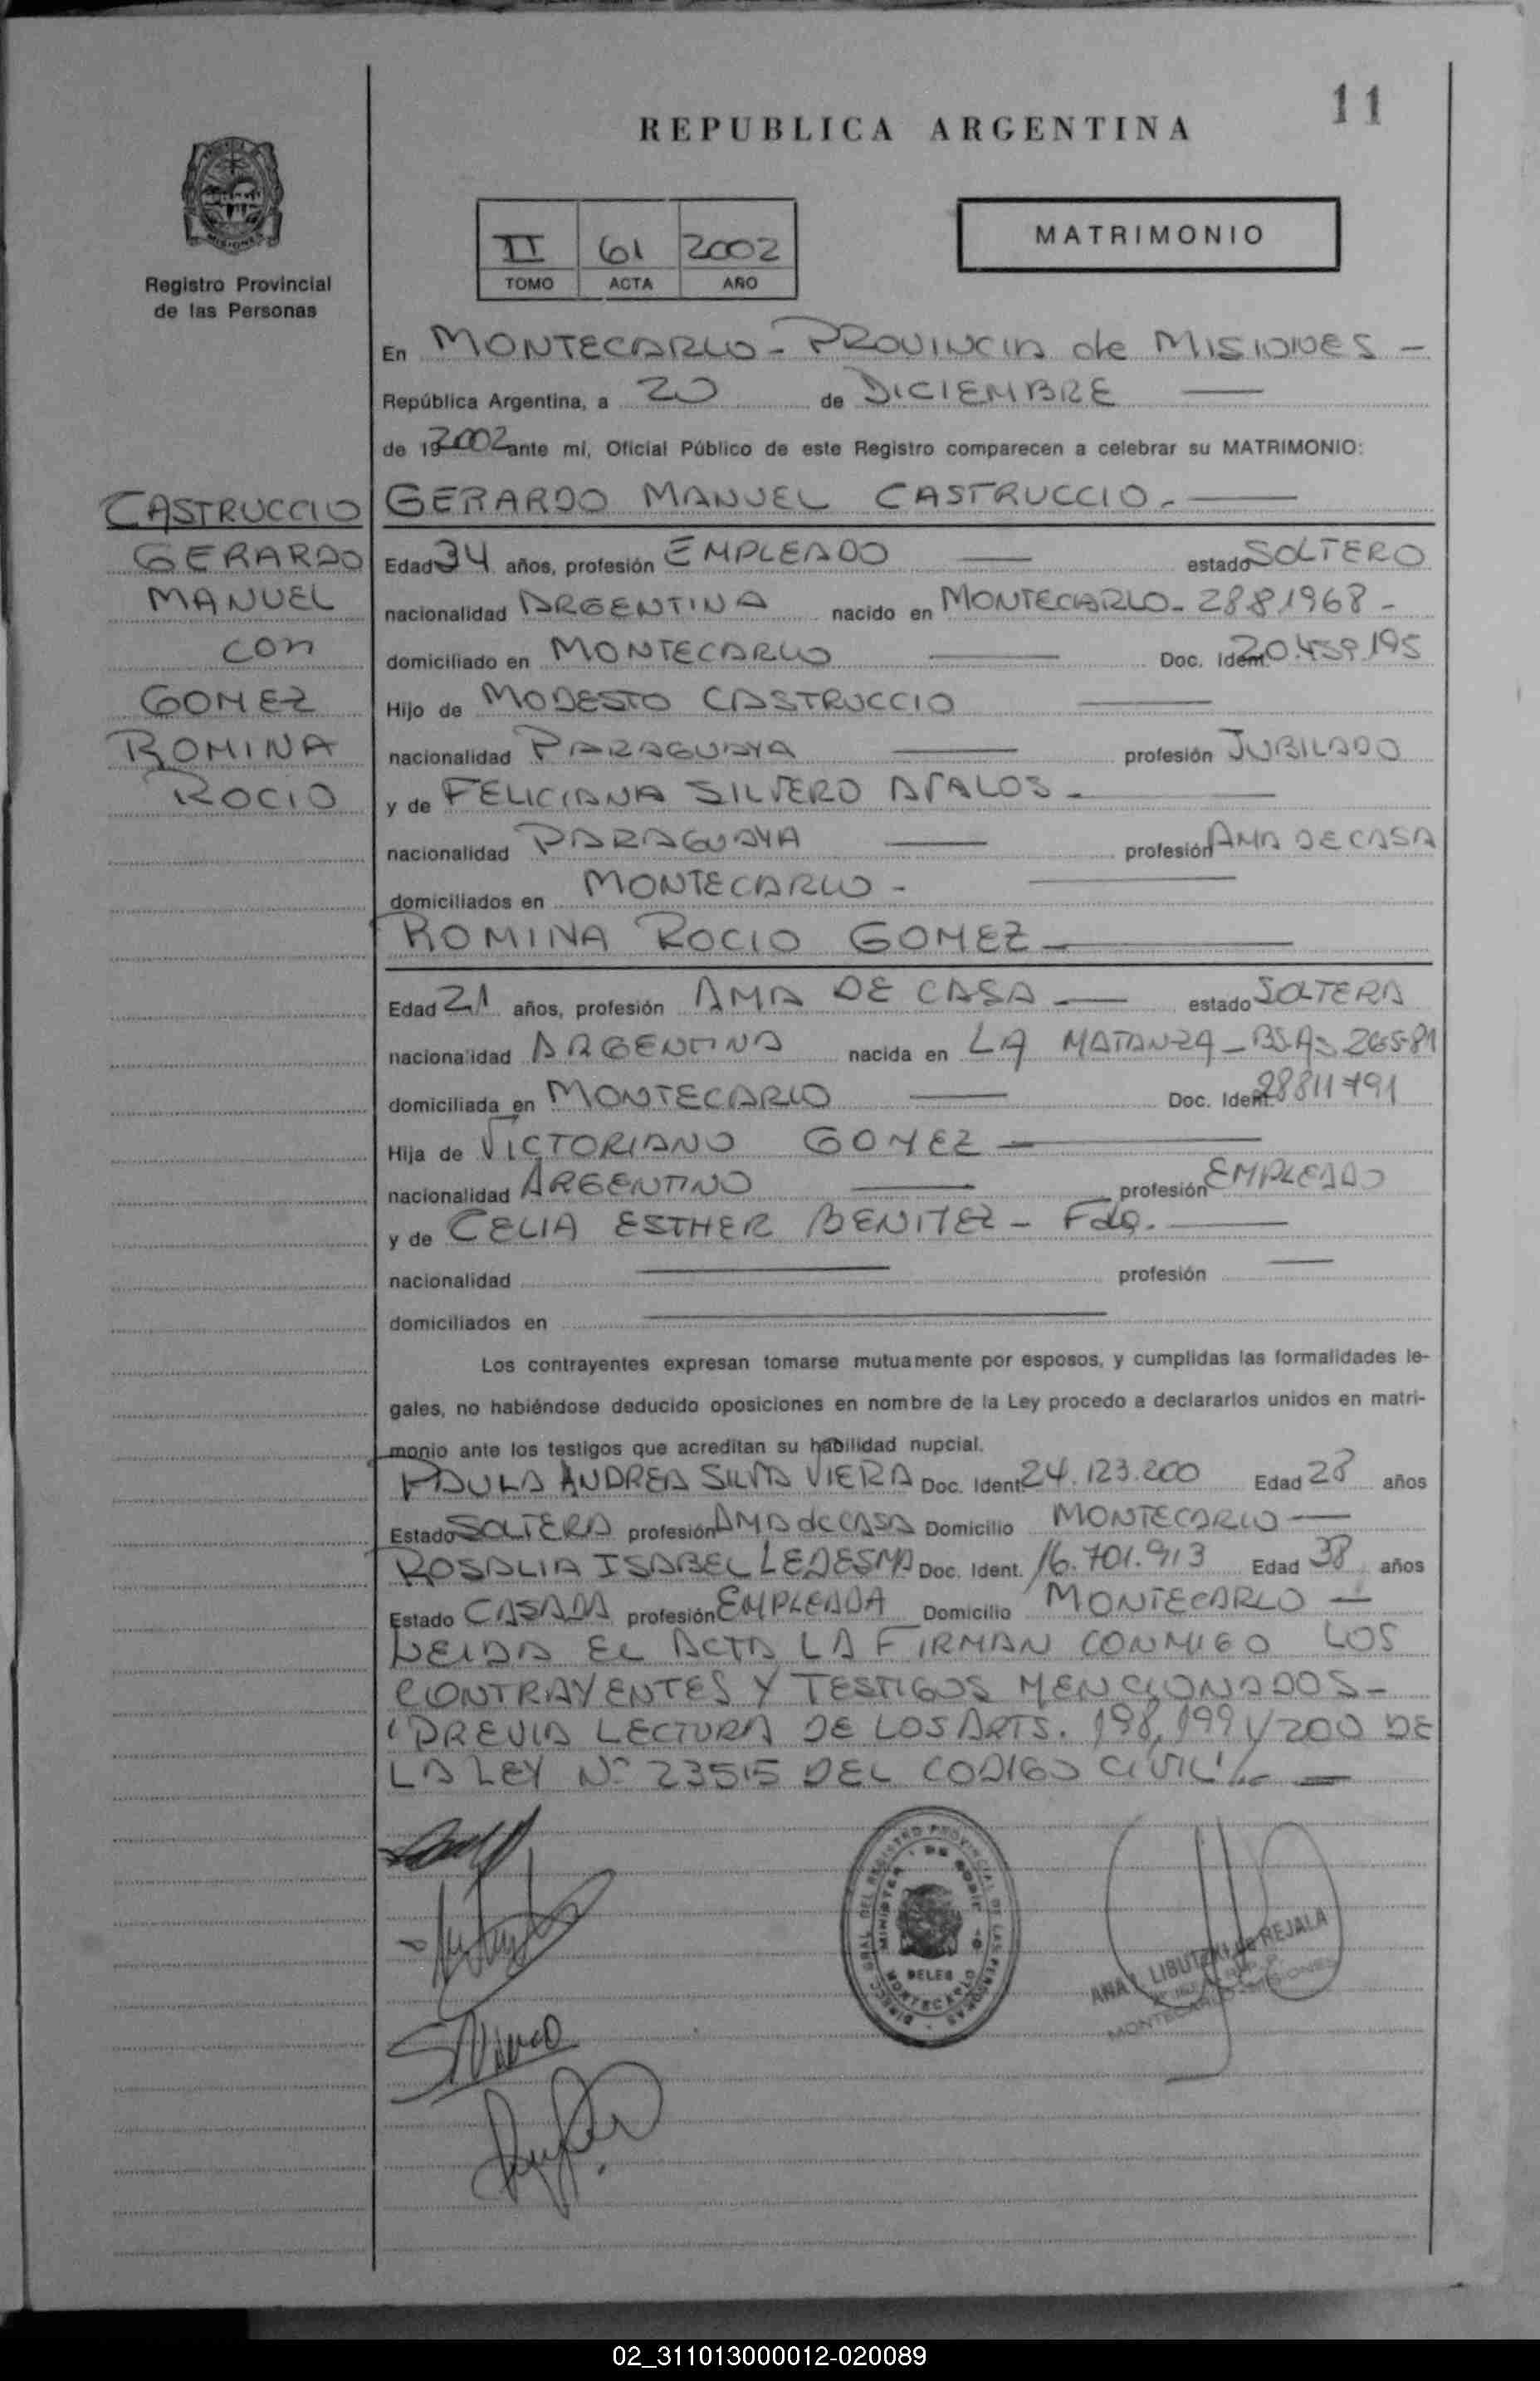 11
REPUBLICA ARGENTINA
MISIONES
Registro Provincial
de las Personas
II 61 2002
TOMO ACTA AÑO
MATRIMONIO
En MONTECARLO - PROVINCIA de MISIONES -
República Argentina, a 20 de DICIEMBRE
de 19 2002 ante mí, Oficial Público de este Registro comparecen a celebrar su MATRIMONIO:
CASTRUCCIO
GERARDO
MANUEL
con
GOMEZ
ROMINA
ROCIO
GERARDO MANUEL CASTRUCCIO.-
Edad 34 años, profesión EMPLEADO estado SOLTERO
nacionalidad ARGENTINA nacido en MONTECARLO - 28.8.1968 -
domiciliado en MONTECARLO Doc. Ident. 20.459.195
Hijo de MODESTO CASTRUCCIO
nacionalidad PARAGUAYA profesión JUBILADO
y de FELICIANA SILVERO AVALOS -
nacionalidad PARAGUAYA profesión AMA DE CASA
domiciliados en MONTECARLO -
ROMINA ROCIO GOMEZ -
Edad 21 años, profesión AMA DE CASA - estado SOLTERA
nacionalidad ARGENTINA nacida en LA MATANZA - BS.AS 26-5-81
domiciliada en MONTECARLO Doc. Ident. 28811791
Hija de VICTORIANO GOMEZ -
nacionalidad ARGENTINO profesión EMPLEADO
y de CELIA ESTHER BENITEZ - Fda.
nacionalidad profesión
domiciliados en
Los contrayentes expresan tomarse mutuamente por esposos, y cumplidas las formalidades le-
gales, no habiéndose deducido oposiciones en nombre de la Ley procedo a declararlos unidos en matri-
monio ante los testigos que acreditan su habilidad nupcial.
PAULA ANDREA SILVA VIERA Doc. Ident 24.123.200 Edad 28 años
Estado SOLTERA profesión AMA de CASA Domicilio MONTECARLO -
ROSALIA ISABEL LEDESMA Doc. Ident. 16.701.913 Edad 38 años
Estado CASADA profesión EMPLEADA Domicilio MONTECARLO -
LEIDA EL ACTA LA FIRMAN CONMIGO LOS
CONTRAYENTES Y TESTIGOS MENCIONADOS -
"PREVIA LECTURA DE LOS ARTS. 198, 199 y 200 DE
LA LEY Nº 23515 DEL CODIGO CIVIL"
DIRECC. GRAL DEL REGISTRO PROVINCIAL DE LAS PERSONAS
MINISTER. DE GOBIE
MONTECARLO
ANA DE REJALA
MONTECARLO - MISIONES
02_311013000012-020089